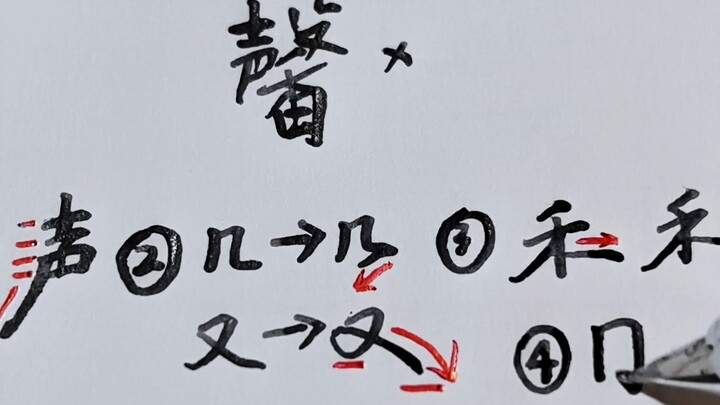 馨 ×
声 ② 几 → 几 ③ 禾 → 禾
又 → 又 ④ 冂